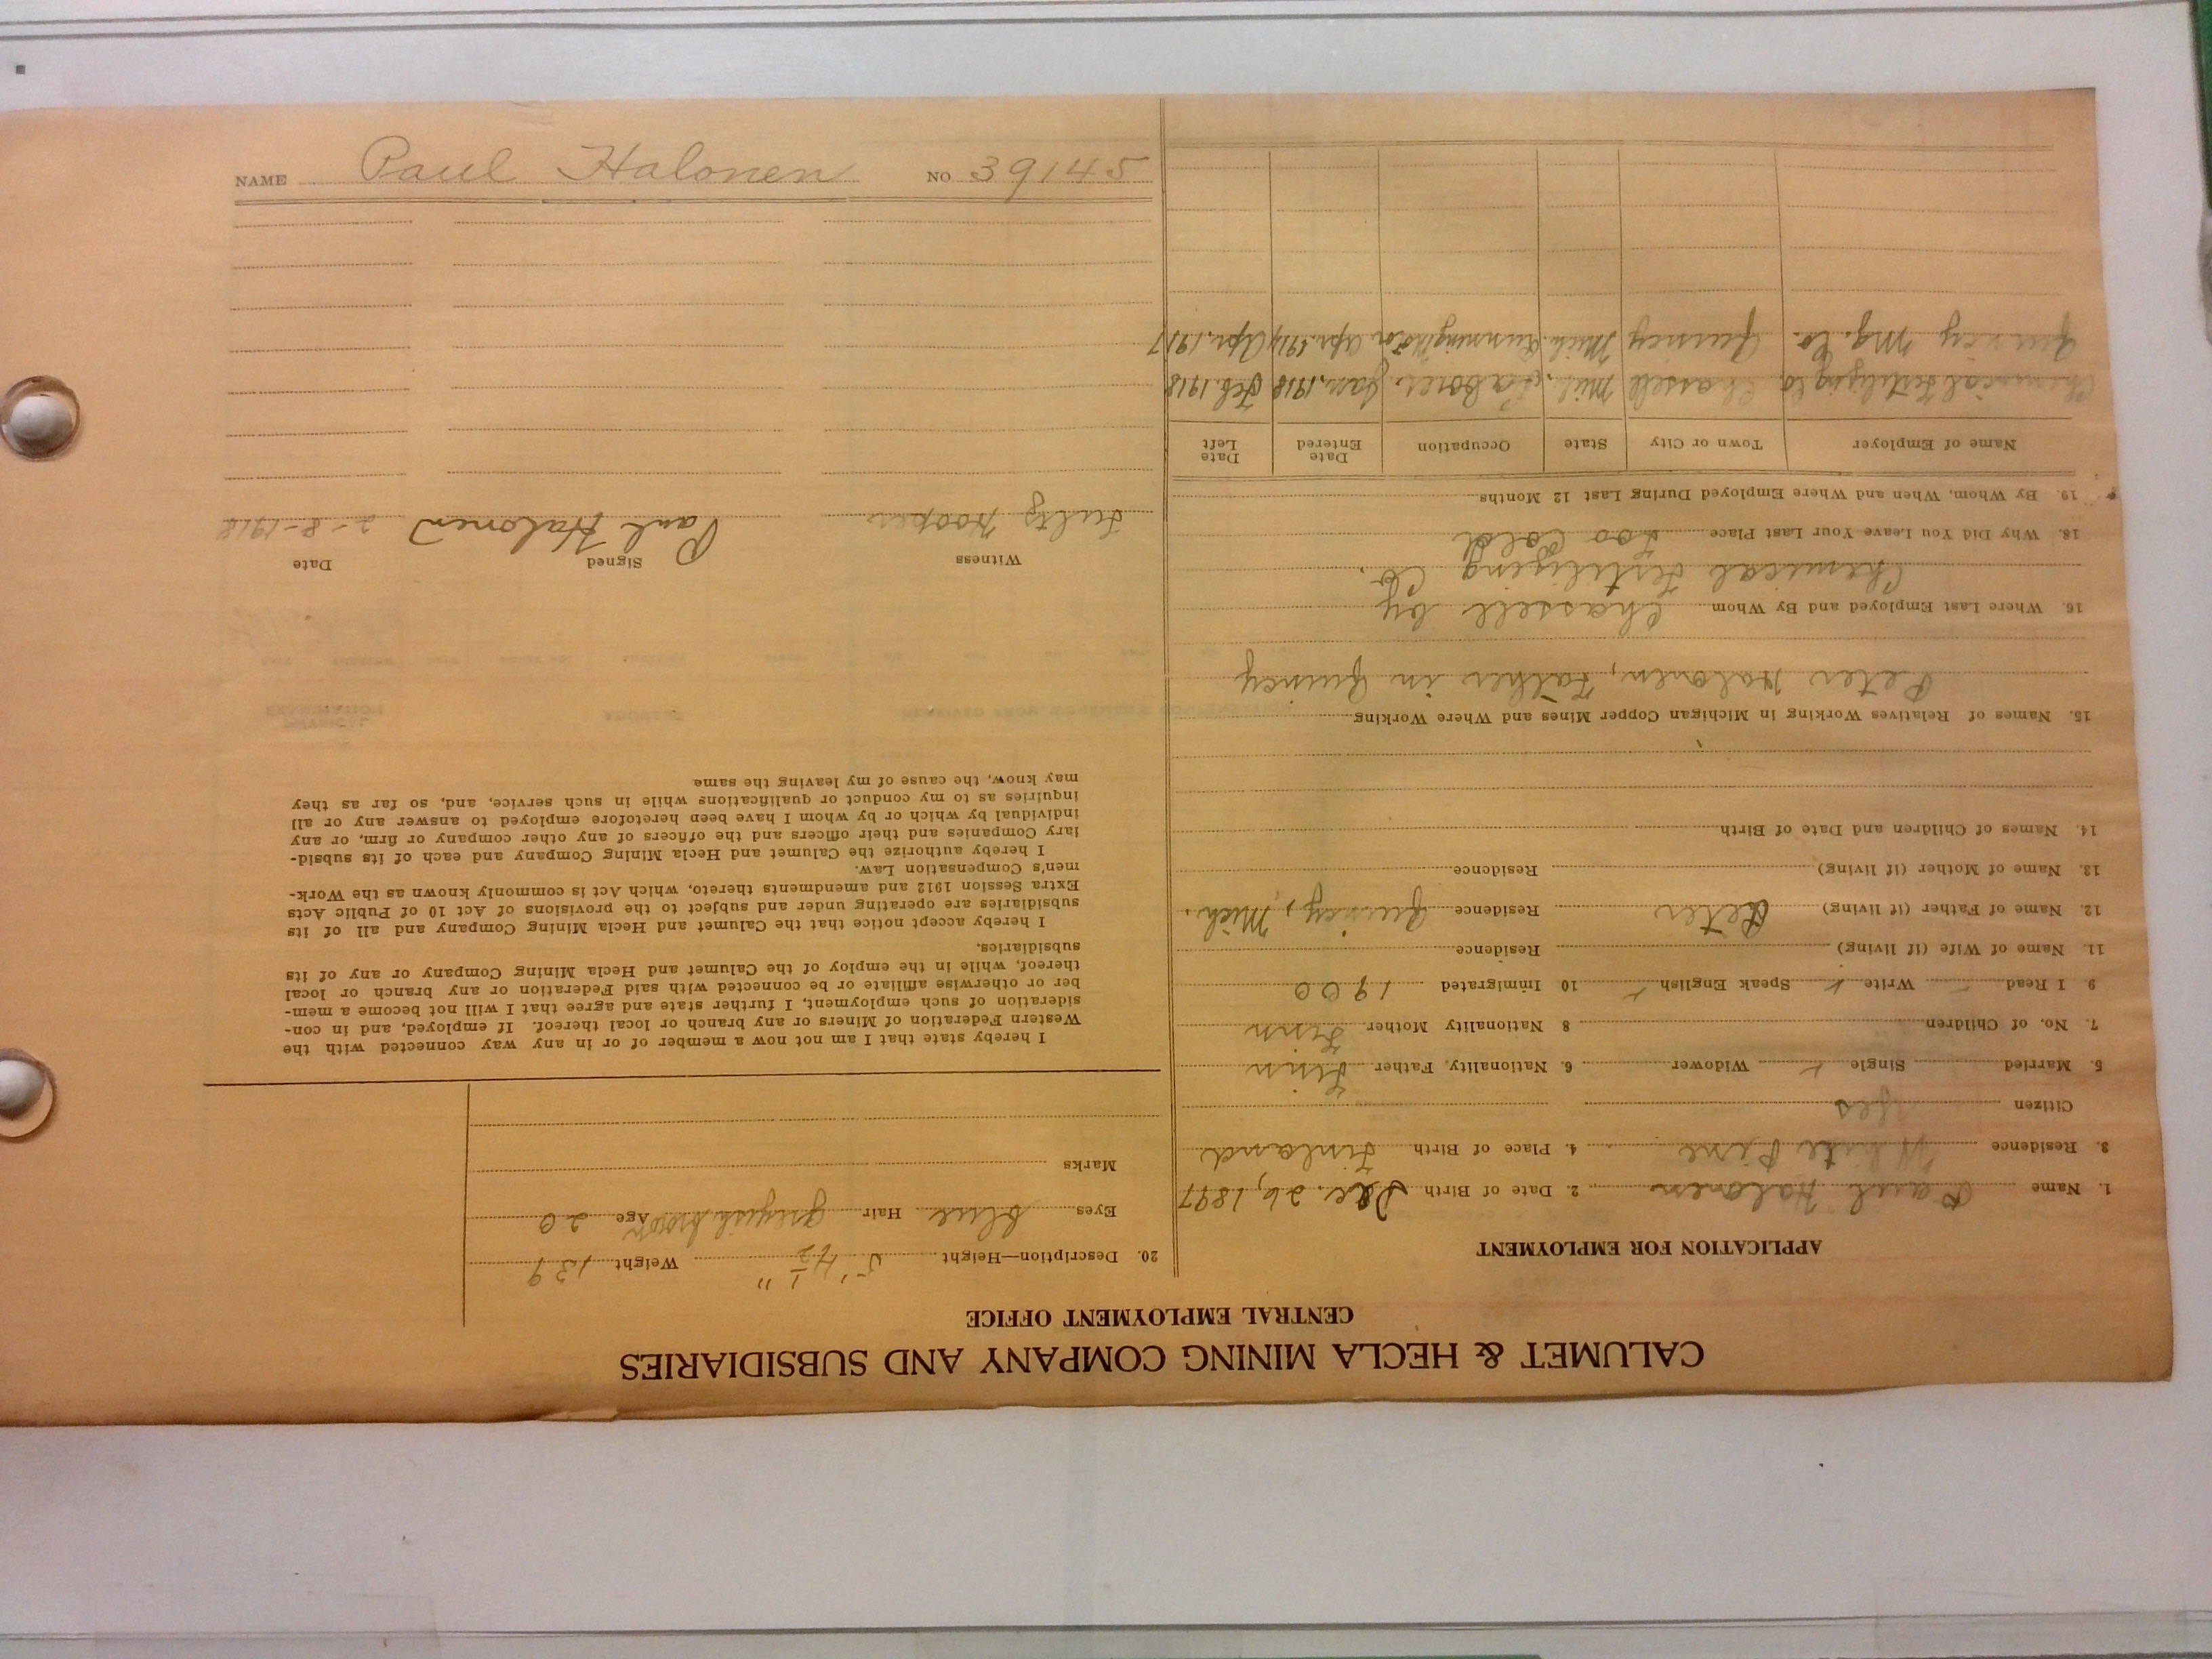 CALUMET & HECLA MINING COMPANY AND SUBSIDIARIES
CENTRAL EMPLOYMENT OFFICE
APPLICATION FOR EMPLOYMENT
1. Name Paul Halonen 2. Date of Birth Dec. 26, 1897
3. Residence White Pine 4. Place of Birth Finland
Citizen Yes
5. Married Single ✓ Widower 6. Nationality, Father Finn
7. No. of Children 8 Nationality Mother Finn
9 I Read – Write ✓ Speak English ✓ 10 Immigrated 1900
11. Name of Wife (if living) Residence
12. Name of Father (if living) Peter Residence Quincy, Mich.
13. Name of Mother (if living) Residence
14. Names of Children and Date of Birth
15. Names of Relatives Working in Michigan Copper Mines and Where Working
Peter Halonen, Father in Quincy
16. Where Last Employed and By Whom Chassell by
Chemical Fertilizing Co.
18. Why Did You Leave Your Last Place too Cold
19. By Whom, When and Where Employed During Last 12 Months
Name of Employer Town or City State Occupation Date Entered Date Left
Chemical Fertilizing Co Chassell Mich. Laborer Jan. 1918 Feb. 1918
Quincy Mg. Co. Quincy Mich. Running Motor Apr. 1914 Apr. 1917
20. Description—Height 5' 4½" Weight 139
Eyes blue Hair greyish brown Age 20
Marks
I hereby state that I am not now a member of or in any way connected with the
Western Federation of Miners or any branch or local thereof. If employed, and in con-
sideration of such employment, I further state and agree that I will not become a mem-
ber or otherwise affiliate or be connected with said Federation or any branch or local
thereof, while in the employ of the Calumet and Hecla Mining Company or any of its
subsidiaries.
I hereby accept notice that the Calumet and Hecla Mining Company and all of its
subsidiaries are operating under and subject to the provisions of Act 10 of Public Acts
Extra Session 1912 and amendments thereto, which Act is commonly known as the Work-
men's Compensation Law.
I hereby authorize the Calumet and Hecla Mining Company and each of its subsid-
iary Companies and their officers and the officers of any other company or firm, or any
individual by which or by whom I have been heretofore employed to answer any or all
inquiries as to my conduct or qualifications while in such service, and, so far as they
may know, the cause of my leaving the same
Witness Signed Date
Hooper Paul Halonen 2-8-1918
NAME Paul Halonen NO 39145